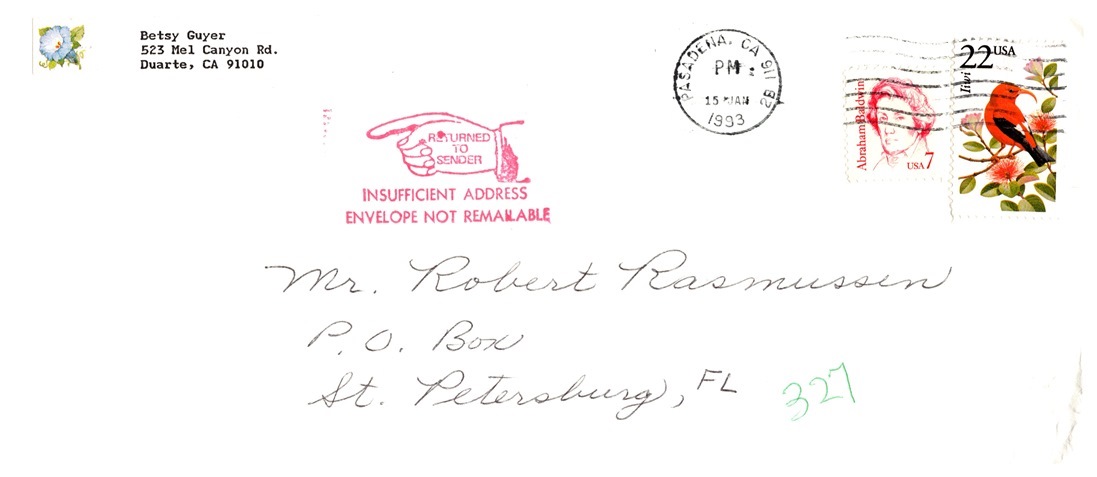 Betsy Guyer
523 Mel Canyon Rd.
Duarte, CA 91010
PASADENA, CA 911 2B
PM
15 JAN
1993
22 USA
Iiwi
Abraham Baldwin
USA 7
RETURNED
TO
SENDER
INSUFFICIENT ADDRESS
ENVELOPE NOT REMAILABLE
Mr. Robert Rasmussen
P.O. Box
St. Petersburg, FL 327